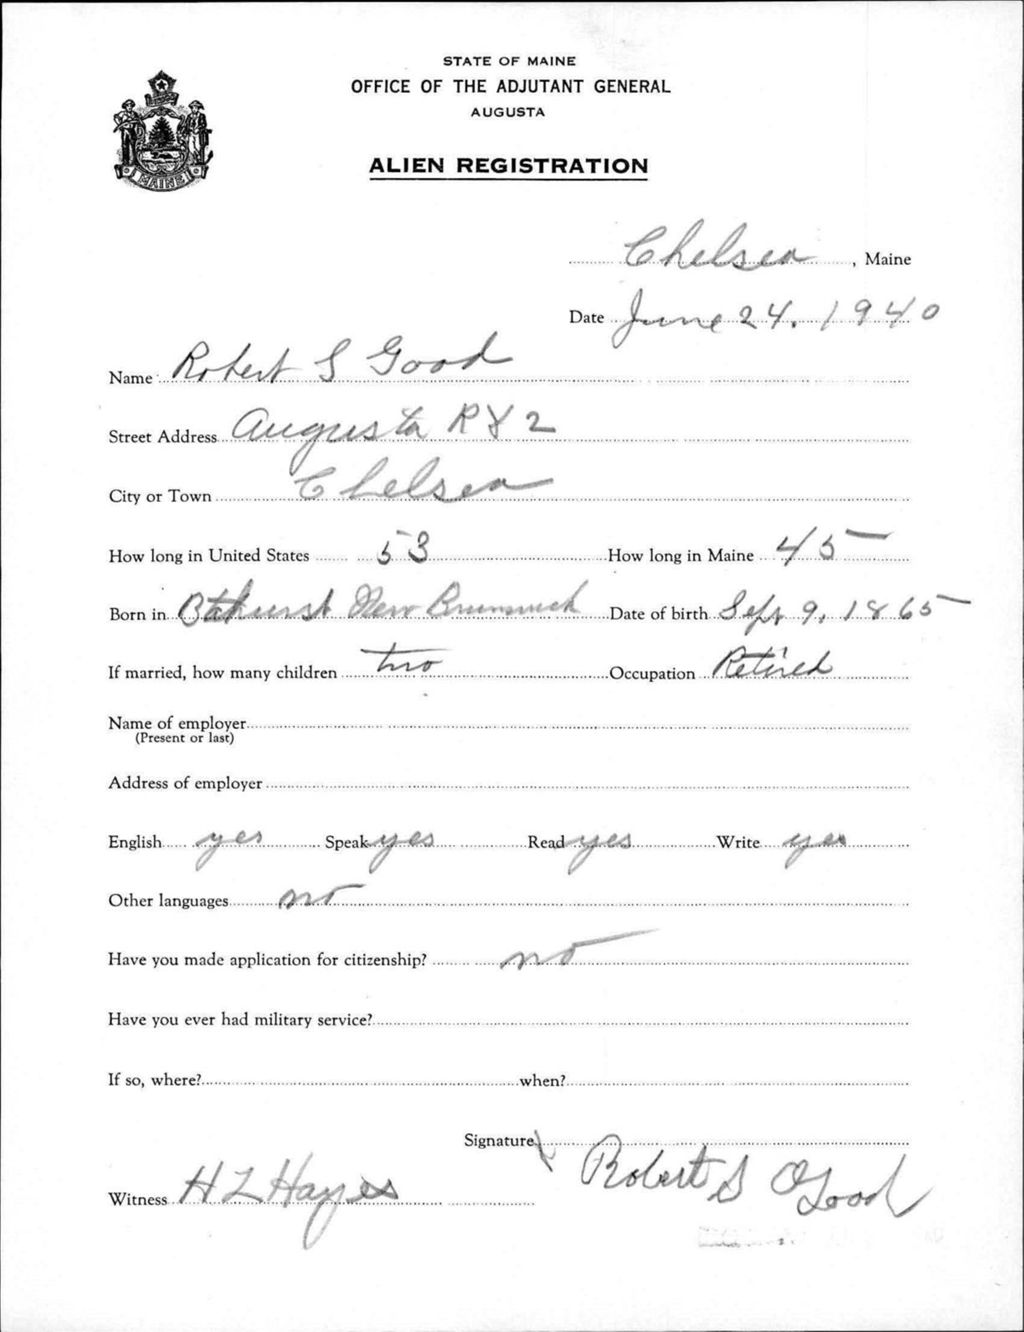 STATE OF MAINE
OFFICE OF THE ADJUTANT GENERAL
AUGUSTA
ALIEN REGISTRATION
MAINE
Chelsea, Maine
Date June 24, 1940
Name Robert S Good
Street Address Augusta R 2
City or Town Chelsea
How long in United States 53 How long in Maine 45
Born in Bathurst New Brunswick Date of birth Sept 9, 1865
If married, how many children two Occupation Retired
Name of employer
(Present or last)
Address of employer
English yes Speak yes Read yes Write yes
Other languages no
Have you made application for citizenship? no
Have you ever had military service?
If so, where? when?
Signature Robert S Good
Witness H L Hayes